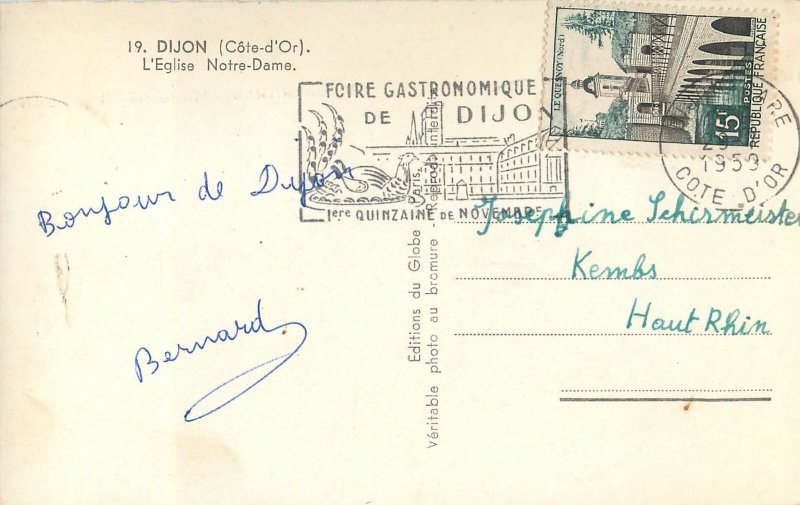 19. DIJON (Côte-d'Or).
L'Eglise Notre-Dame.
FOIRE GASTRONOMIQUE
DE DIJON
1ere QUINZAINE DE NOVEMBRE
LE QUESNOY (Nord)
15F
POSTES
REPUBLIQUE FRANÇAISE
1959
COTE D'OR
Bonjour de Dijon
Bernard
Editions du Globe Paris.
Véritable photo au bromure - Reprod. interdite
Josephine Schirmeister
Kembs
Haut Rhin